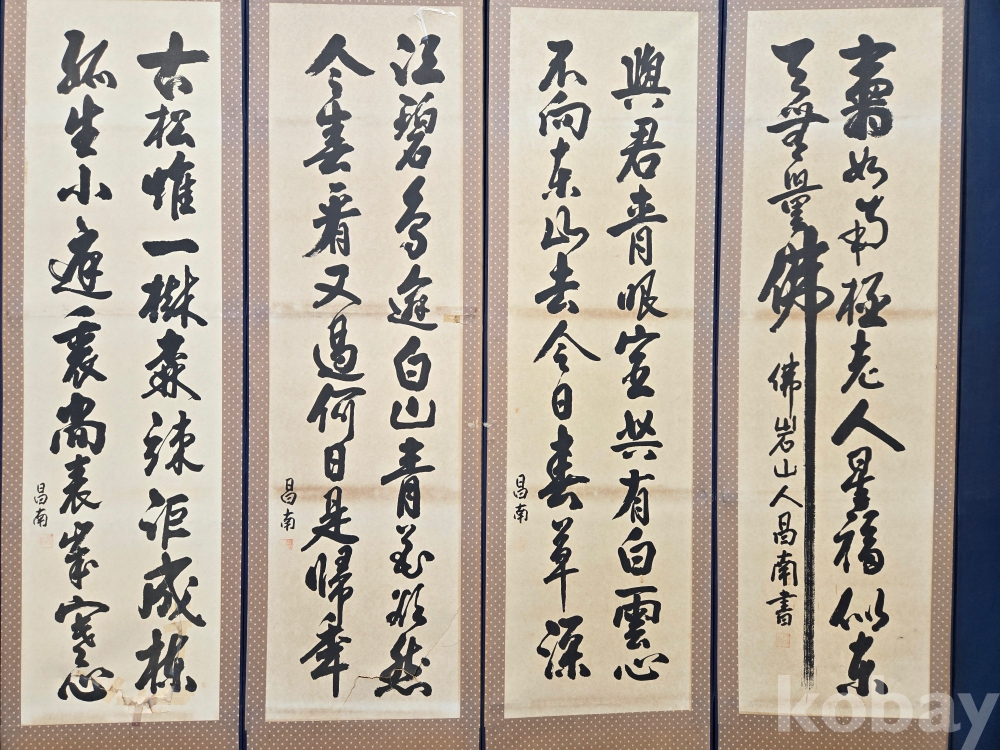 壽如南極老人星福似東
天無量佛
佛岩山人昌南書
與君青眼客共有白雲心
不向東山去今日春草深
昌南
江碧鳥逾白山青花欲然
今春看又過何日是歸年
昌南
古松惟一樹森竦詎成林
孤生小庭裏尚表歲寒心
昌南
kobay